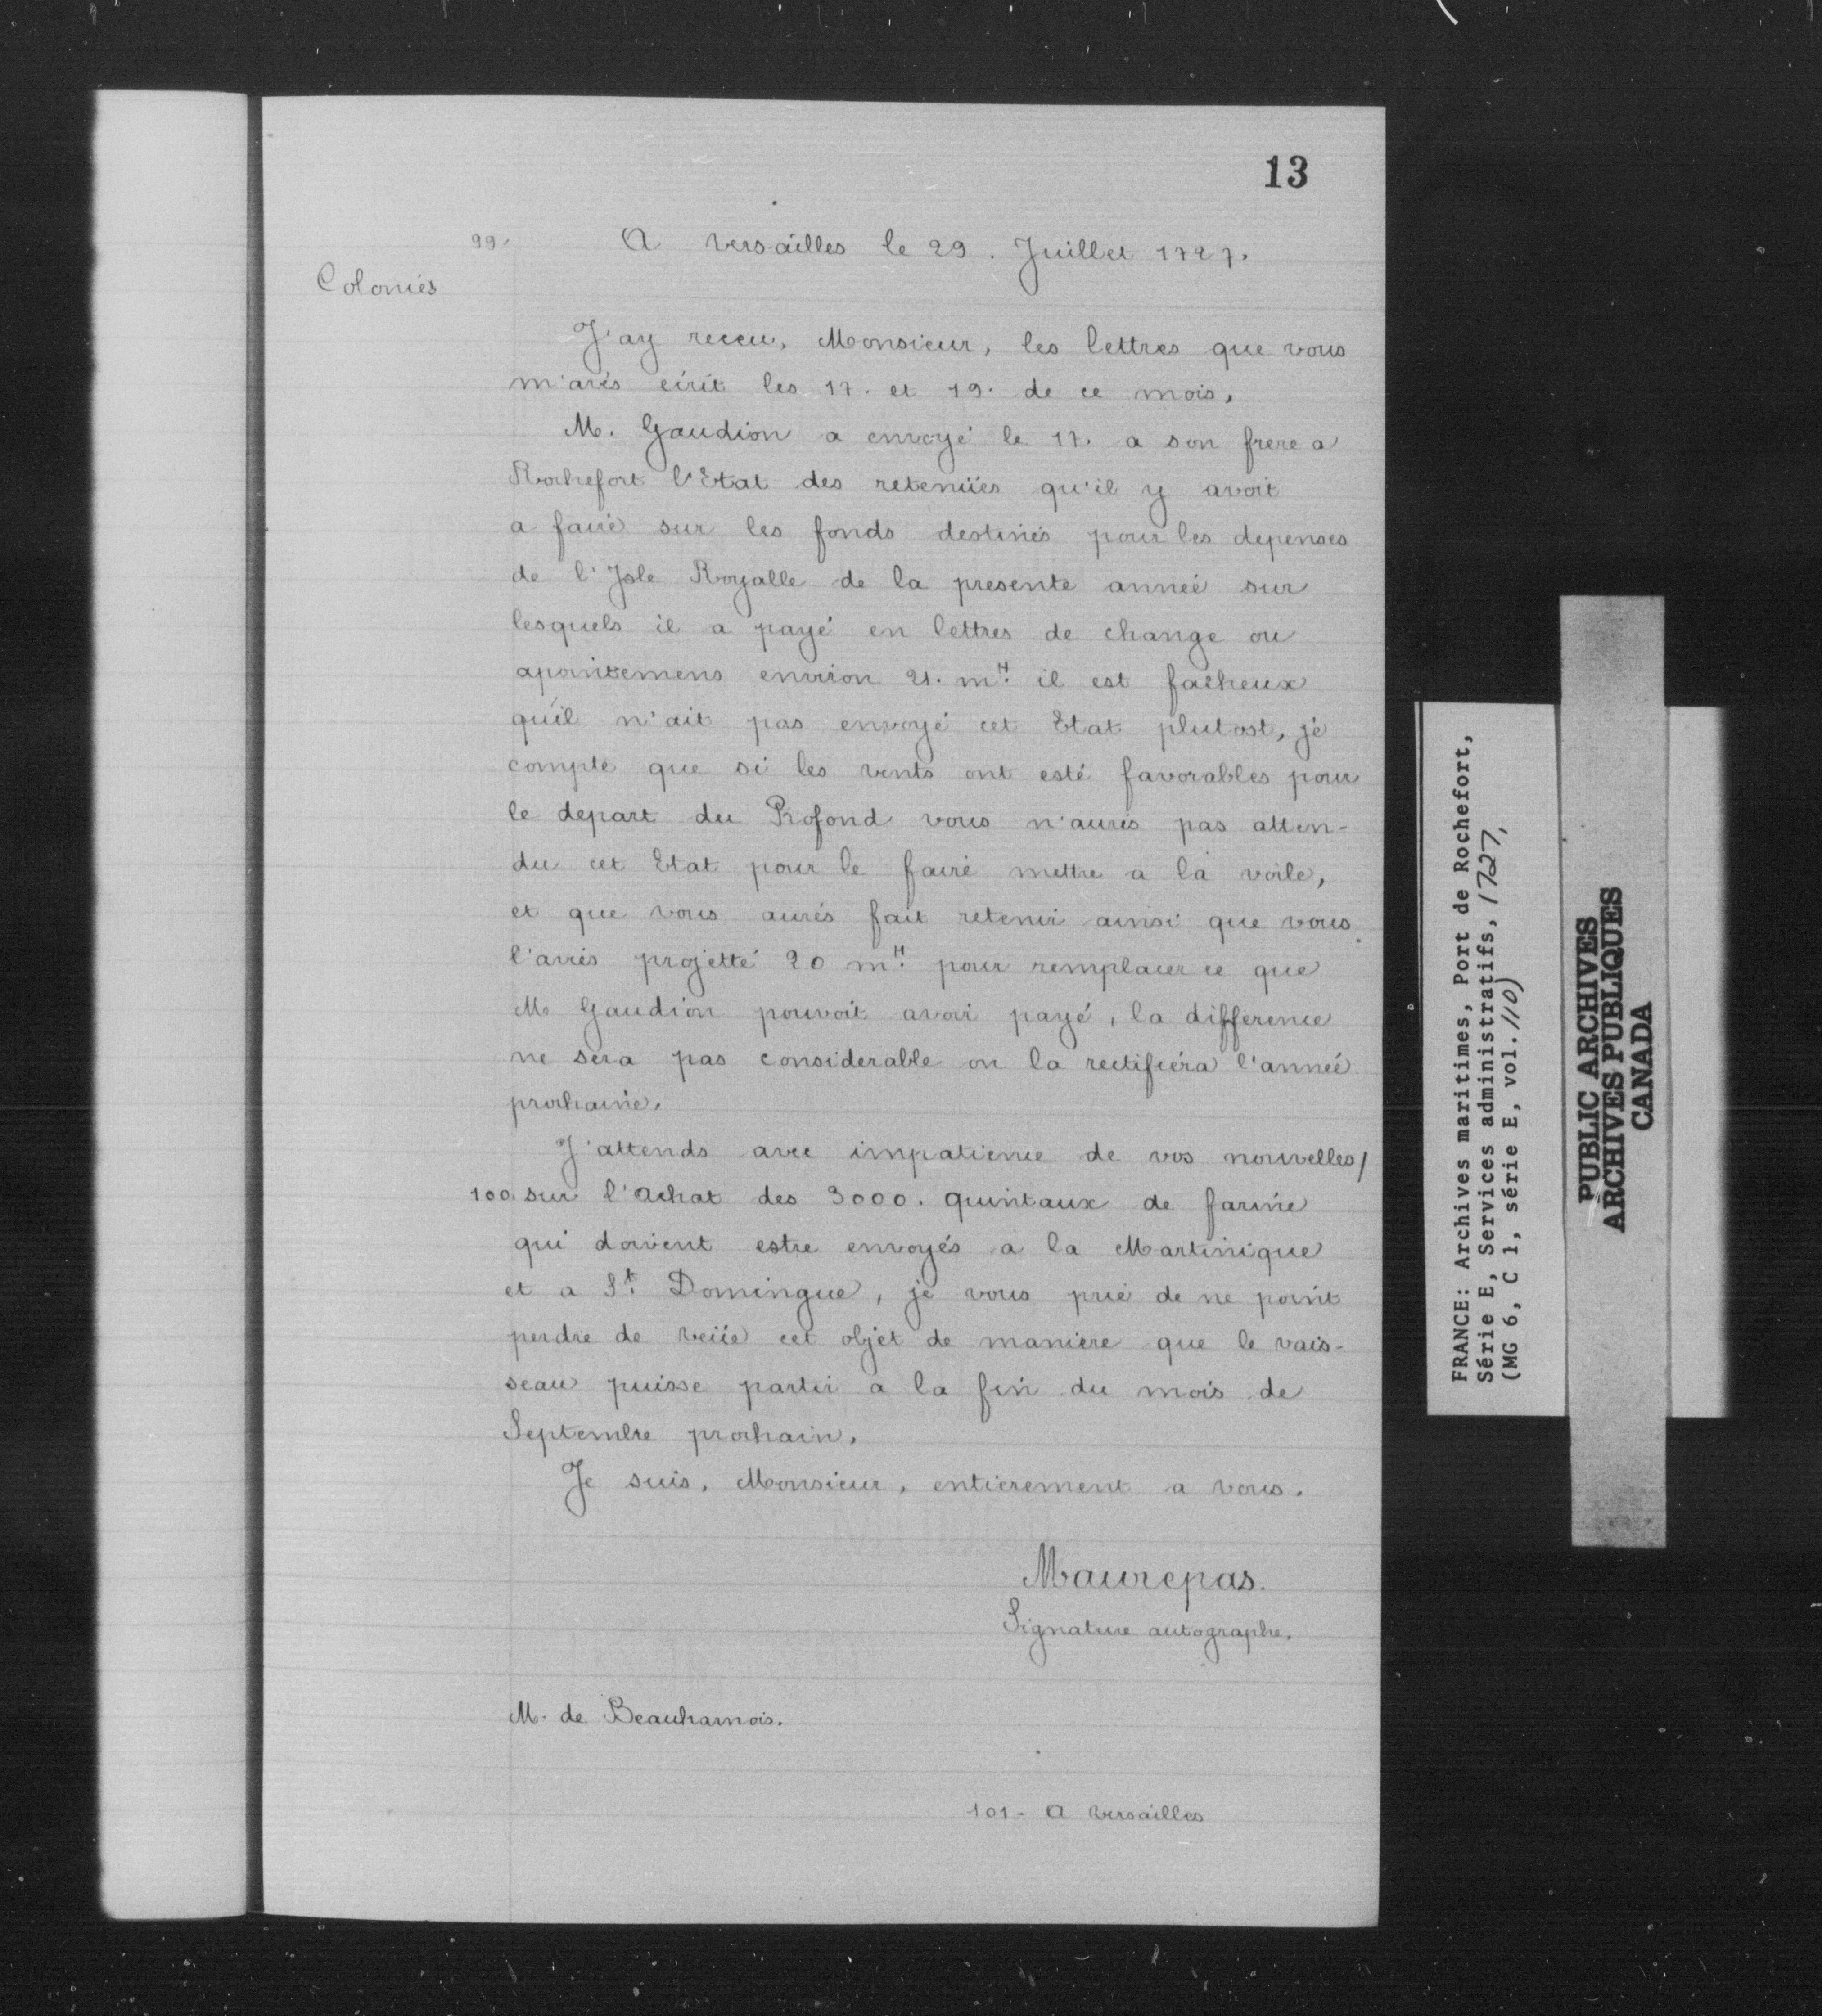 13
99.
A Versailles le 29. Juillet 1727.
Colonies
J'ay receu, Monsieur, les lettres que vous
m'avés écrit les 17. et 19. de ce mois,
M. Gaudion a envoyé le 17. a son frere a
Rochefort l'Etat des retenües qu'il y avoit
a faire sur les fonds destinés pour les depenses
de l'Isle Royalle de la presente année sur
lesquels il a payé en lettres de change ou
apointemens environ 21. m.ᴴ il est facheux
qu'il n'ait pas envoyé cet Etat plutost, je
compte que si les vents ont esté favorables pour
le depart du Profond vous n'aurés pas atten-
du cet Etat pour le faire mettre a la voile,
et que vous aurés fait retenir ainsi que vous
l'aviés projetté 20 m.ᴴ pour remplacer ce que
M. Gaudion pouvoit avoir payé, la difference
ne sera pas considerable on la rectifiera l'année
prochaine.
J'attends avec impatience de vos nouvelles/
100. sur l'achat des 3000. quintaux de farine
qui doivent estre envoyés a la Martinique
et a St. Domingue, je vous prie de ne point
perdre de veüe cet objet de maniere que le vais-
seau puisse partir a la fin du mois de
Septembre prochain.
Je suis, Monsieur, entierement a vous.
Maurepas.
Signature autographe.
M. de Beauharnois.
101- A Versailles
FRANCE: Archives maritimes, Port de Rochefort,
Série E, Services administratifs, 1727,
(MG 6, C 1, série E, vol. 110)
PUBLIC ARCHIVES
ARCHIVES PUBLIQUES
CANADA